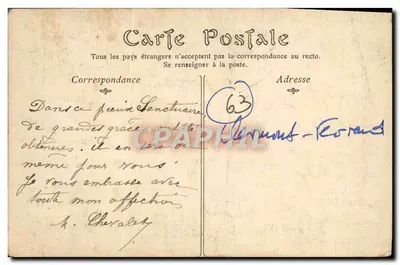 Carte Postale
Tous les pays étrangers n'acceptent pas la correspondance au recto.
Se renseigner à la poste.
Correspondance
Adresse
Dans ce pieux Sanctuaire
de grandes grâces
obtenues. il en sera de
même pour vous
Je vous embrasse avec
toute mon affection
M. Chevalet
63
Clermont-Ferrand